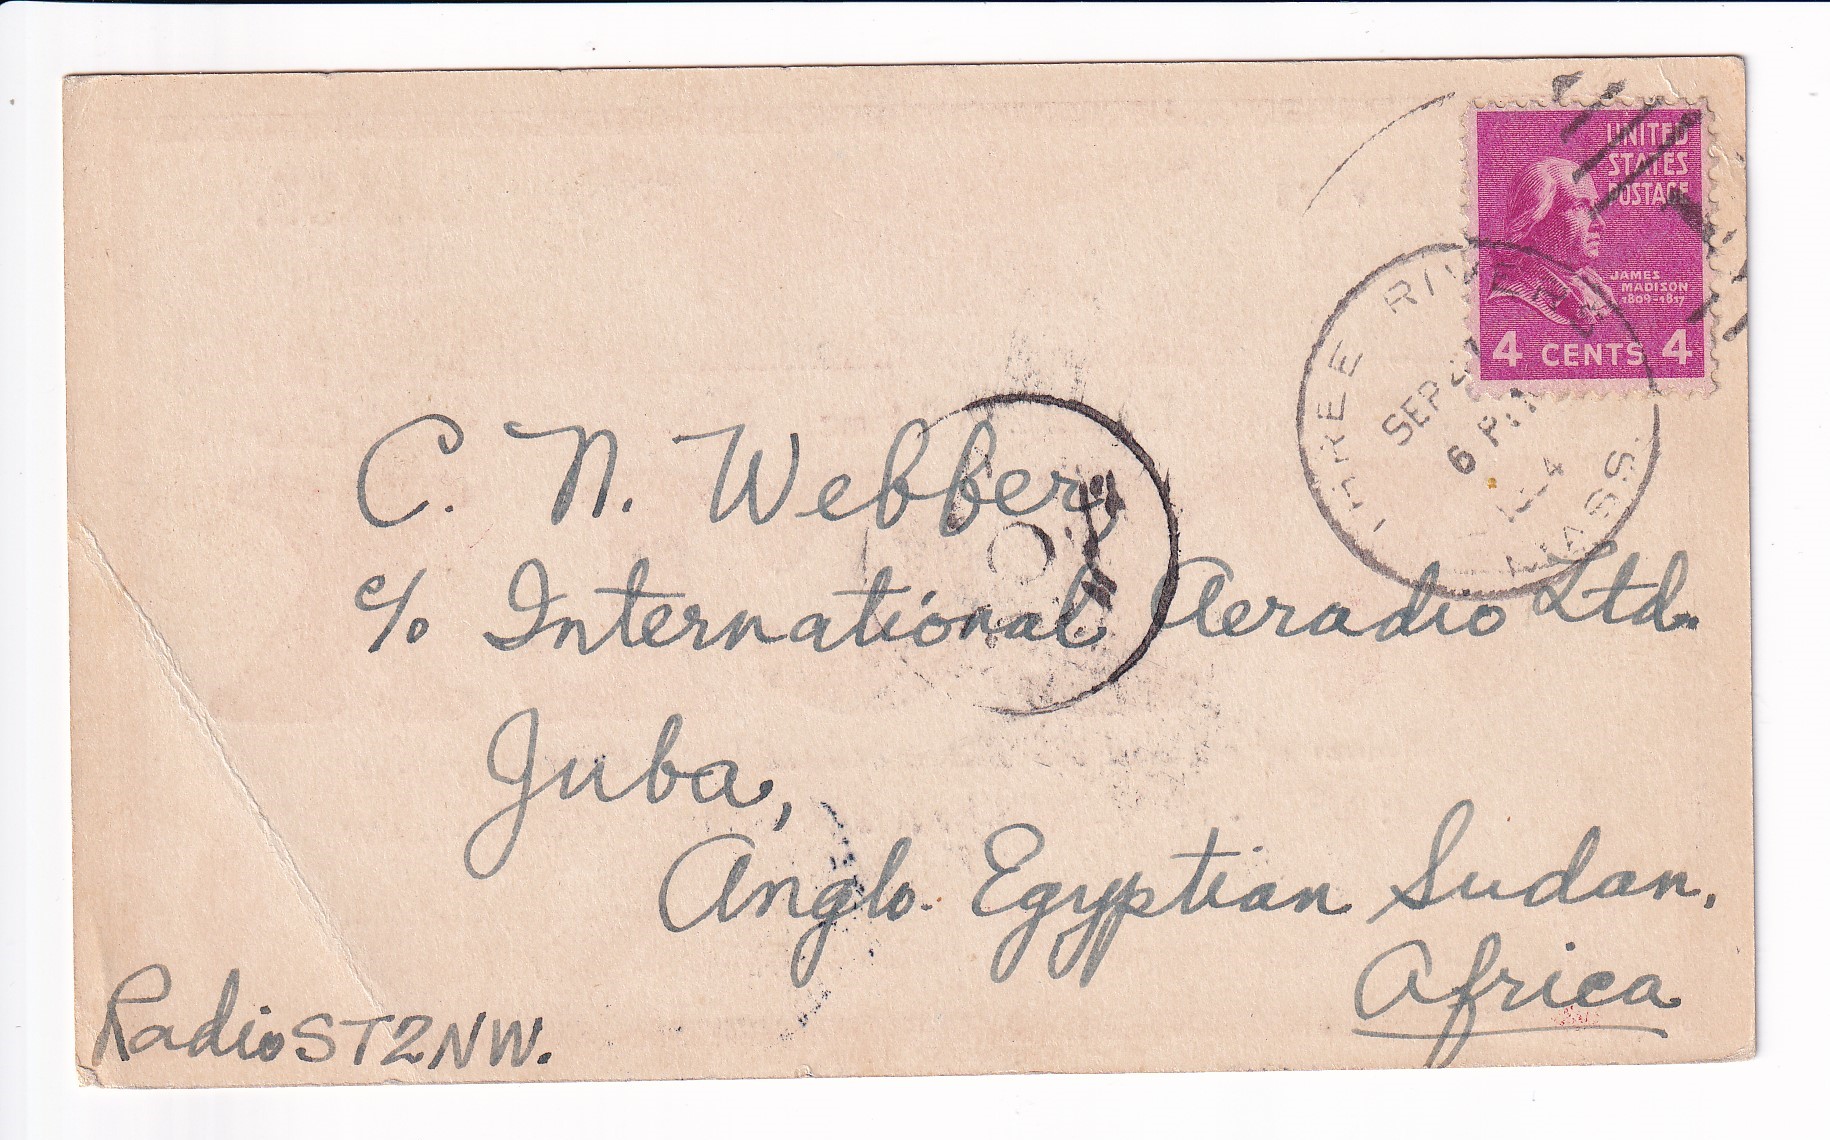 UNITED
STATES
POSTAGE
JAMES
MADISON
1809-1817
4 CENTS 4
THREE RIVERS
SEP
6 PM
MASS.
C. N. Webber,
c/o International Aeradio Ltd.
Juba,
Anglo-Egyptian Sudan,
Africa
Radio ST2NW.